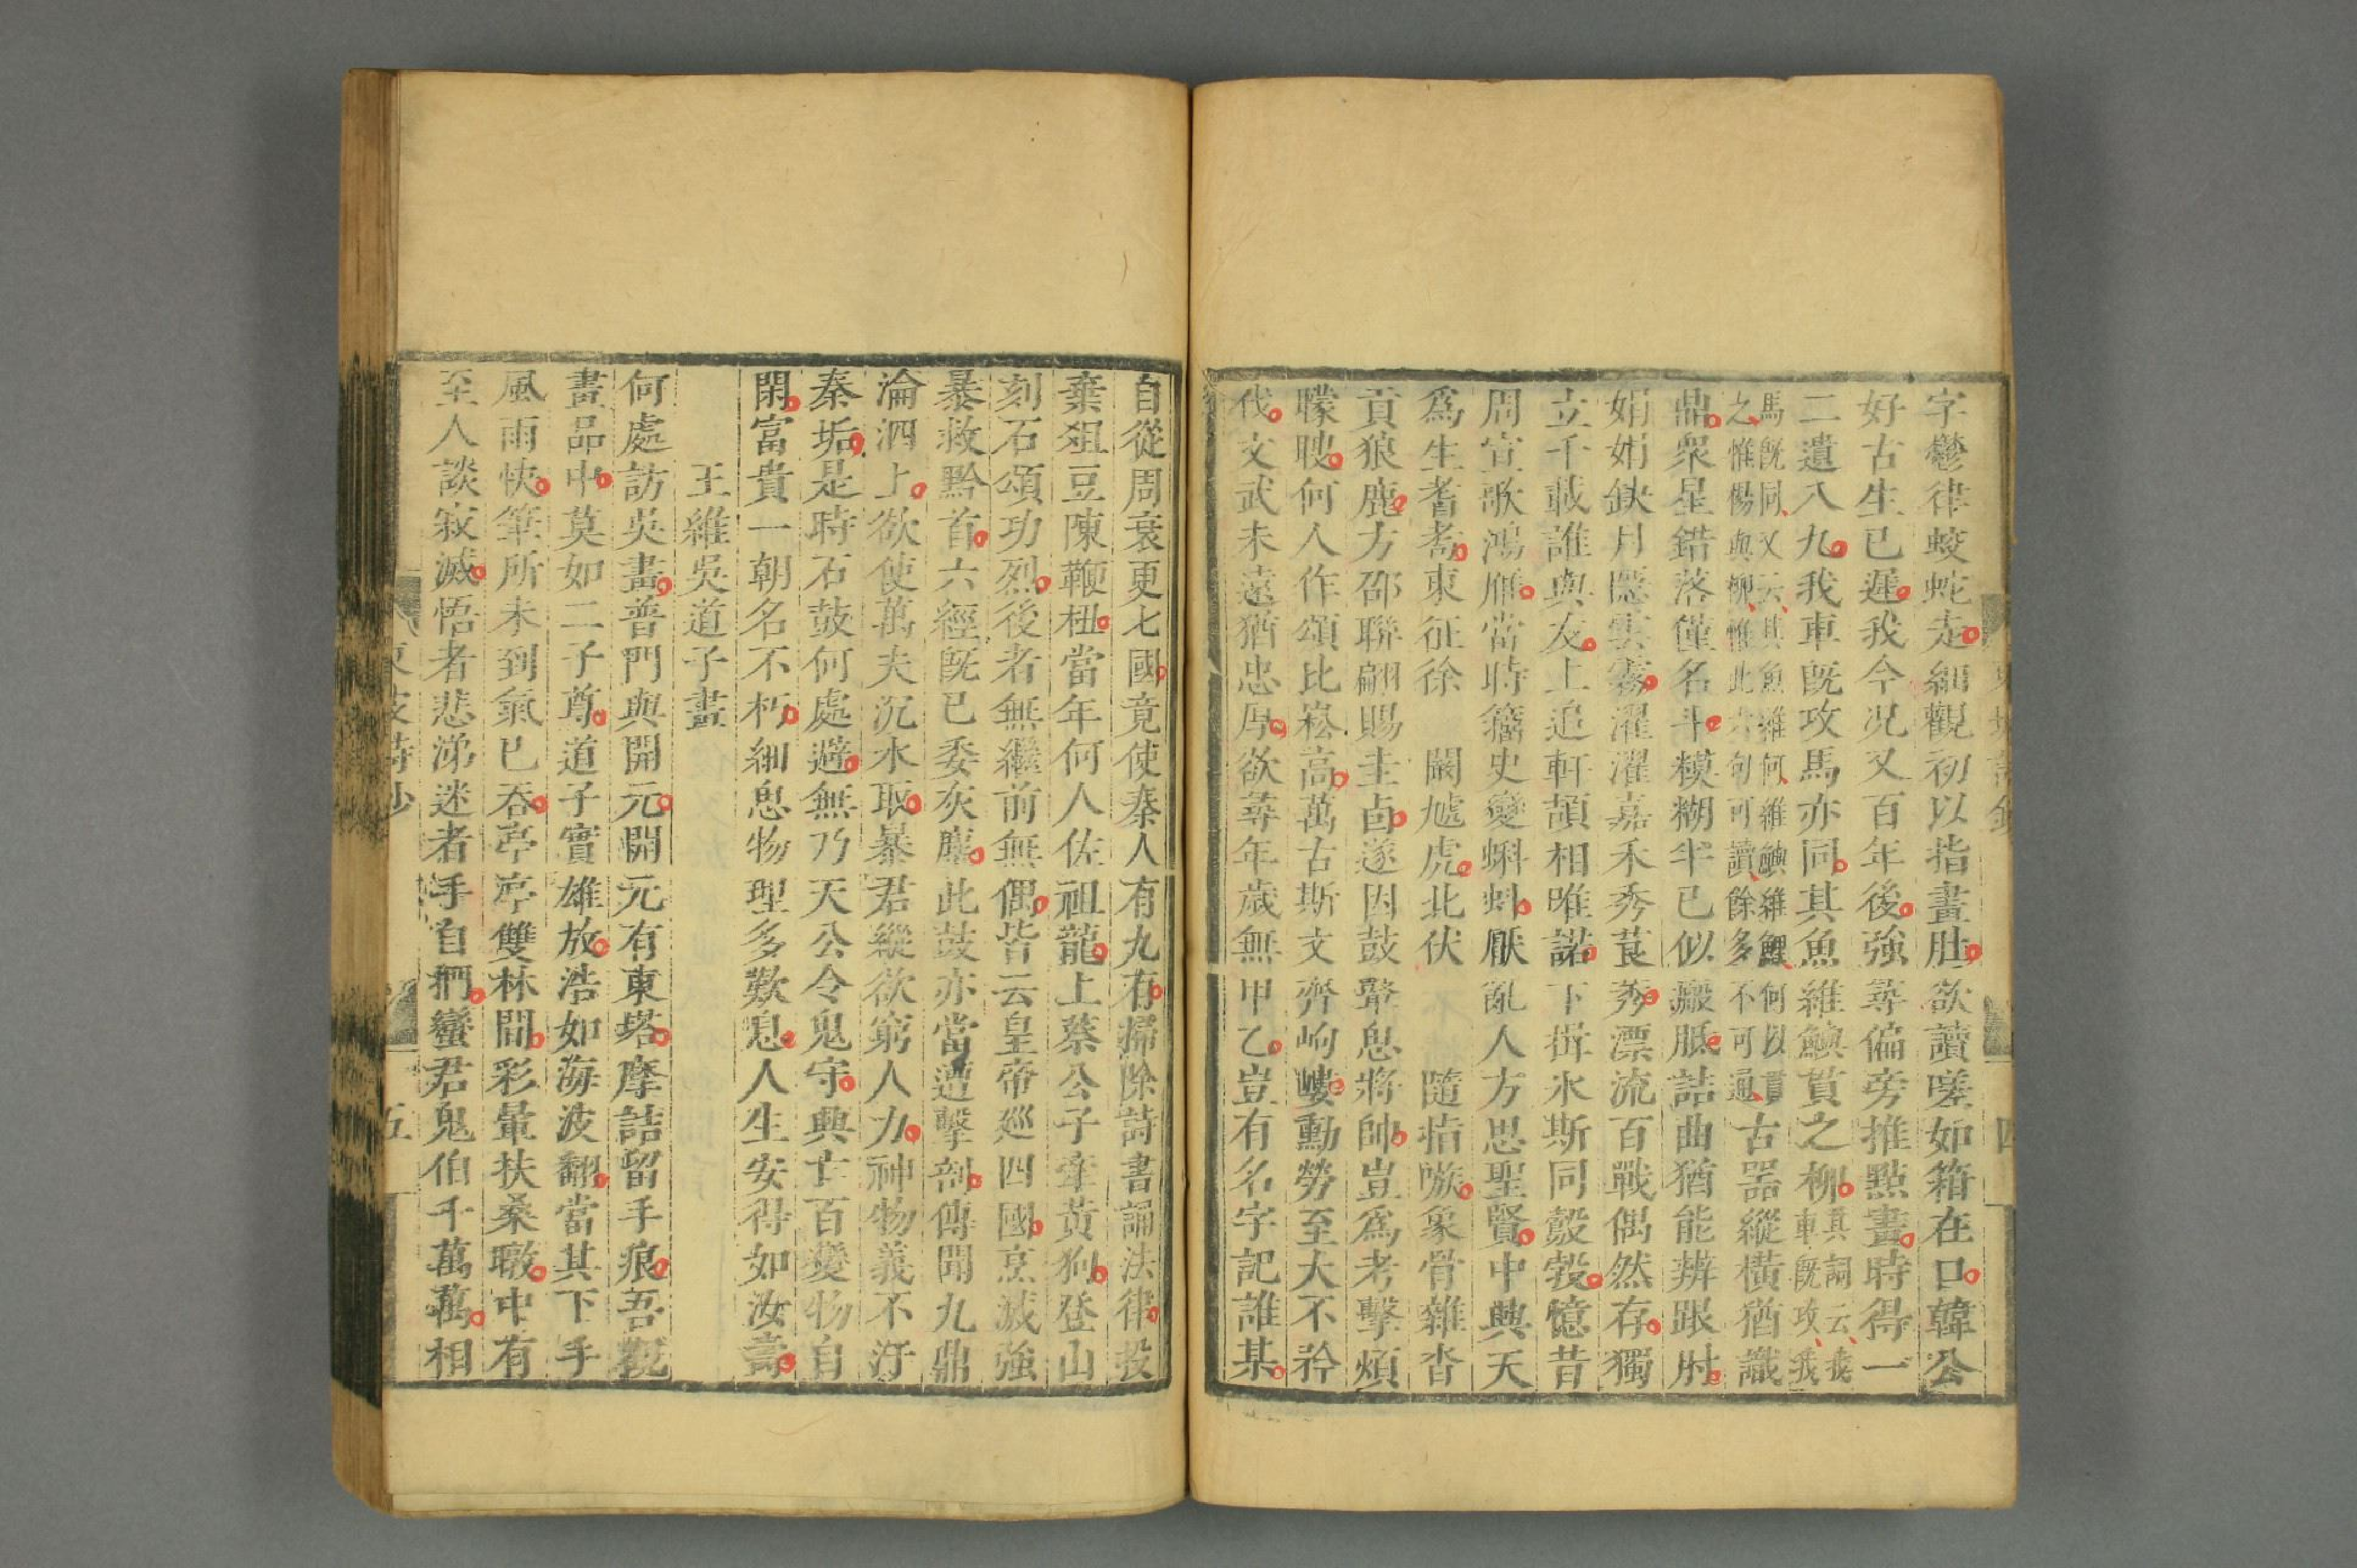 字鬱律蛟蛇走細觀初以指畫肚欲讀嗟如箝在口韓公
好古生已遲我今况又百年後強尋偏旁推點畫時得一
二遺八九我車旣攻馬亦同其魚維鱮貫之柳其詞云我車旣攻我
馬旣同又云其魚維何維鱮維鯉何以貫之惟楊與柳惟此六句可讀餘多不可通古器縱橫猶識
鼎衆星錯落僅名斗模糊半已似瘢胝詰曲猶能辨跟肘
娟娟缺月隱雲霧濯濯嘉禾秀莨莠漂流百戰偶然存獨
立千載誰與友上追軒頡相唯諾下揖氷斯同鷇𪃟憶昔
周宣歌鴻雁當時籀史變蝌蚪厭亂人方思聖賢中興天
爲生耆耇東征徐 闞虓虎北伏 隨指嗾象骨雜沓
貢狼鹿方邵聯翩賜圭卣遂因鼓鼙思將帥豈爲考擊煩
矇瞍何人作頌比崧高萬古斯文齊岣嶁勳勞至大不矜
伐文武未遠猶忠厚欲尋年歲無甲乙豈有名字記誰某
四
自從周衰更七國竟使秦人有九有掃除詩書誦法律投
棄俎豆陳鞭杻當年何人佐祖龍上蔡公子牽黃狗登山
刻石頌功烈後者無繼前無偶皆云皇帝廵四國烹滅強
暴救黔首六經旣已委灰塵此鼓亦當遭擊剖傳聞九鼎
淪泗上欲使萬夫沉水取暴君縱欲窮人力神物義不汙
秦垢是時石鼓何處避無乃天公令鬼守興亡百變物自
閑富貴一朝名不朽細思物理多歎息人生安得如汝壽
王維吳道子畫
何處訪吳畫普門與開元開元有東塔摩詰留手痕吾觀
畫品中莫如二子尊道子實雄放浩如海波翻當其下手
風雨快筆所未到氣已吞亭亭雙林間彩暈扶桑暾中有
至人談寂滅悟者悲涕迷者手自捫蠻君鬼伯千萬萬相
五